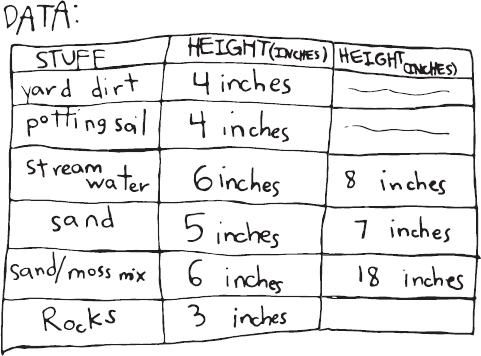 DATA:
STUFF HEIGHT(INCHES) HEIGHT(INCHES)
yard dirt 4 inches
potting soil 4 inches
stream water 6 inches 8 inches
sand 5 inches 7 inches
sand/moss mix 6 inches 18 inches
Rocks 3 inches